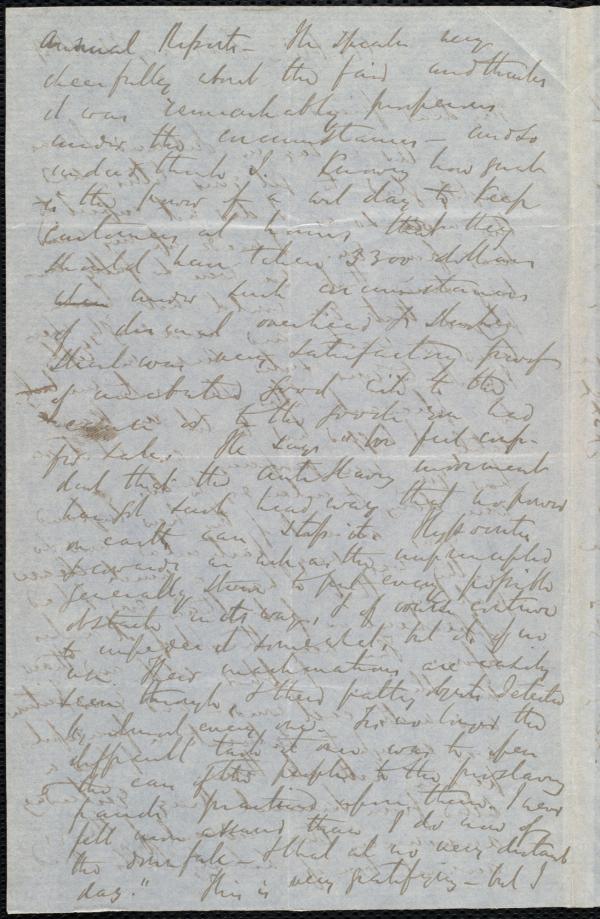 Annual Reports - He speaks very
cheerfully about the fair and thinks
it was remarkably prosperous
under the circumstances - and so
indeed think I. Knowing how great
is the power of a wet day to keep
customers at home, that they
should have taken 3300 dollars
under such circumstances
of dismal overhead &
think was very satisfactory proof
of unabated good will to the
cause as to the goods you had
for sale. He says "We feel confi-
dent that the Anti Slavery movement
has got such head way that no power
on earth can stop it. Hypocrites,
& cowards as well as the unprincipled
generally strive to put every possible
obstacle in its way, & of course contrive
to impede it somewhat, but it is of no
use. Their machinations are easily
seen through, & their paltry objects detected
by almost every one. Tis no longer the
difficult task it once was to open
the eyes of the people to the proslavery
frauds practised upon them. I never
felt more assured than I do now of
the downfall - & that at no very distant
day." This is very gratifying - but I